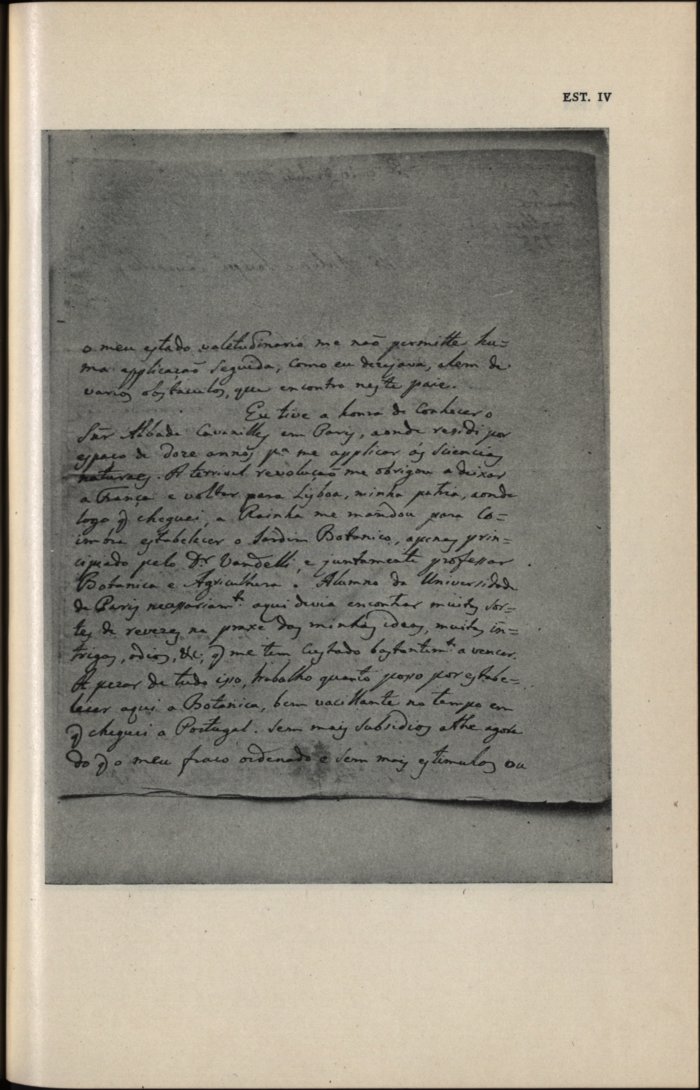 EST. IV
o meu estado valetudinario me não permitte hu=
ma applicação seguida, como eu dezejava, alem de
varios obstaculos, que encontro neste paiz.
Eu tive a honra de conhecer o
Sñr Abbade Cavanilles em Paris, aonde residi por
espaço de doze annos pª me applicar ás Sciencias
naturaes. A terrivel revolução me obrigou a deixar
a França e voltar para Lisboa, minha patria, aonde
logo q cheguei, a Rainha me mandou para Co=
imbra estabelecer o Jardim Botanico, apenas prin=
cipiado pelo Dr. Vandelli, e juntamente professar
Botanica e Agricultura. Alumno da Universidade
de Paris necessariamt.e aqui devia encontrar muitas sor=
tes de revezes na praxe das minhas ideas, muitas in=
trigas, odios, &c, q me tem custado bastantemt.e a vencer.
A pezar de tudo isso, trabalho quanto posso por estabe=
lecer aqui a Botanica, bem vacillante no tempo em
q cheguei a Portugal. Sem mais subsidios athe agora
do q o meu fraco ordenado e sem mais estimulos ou